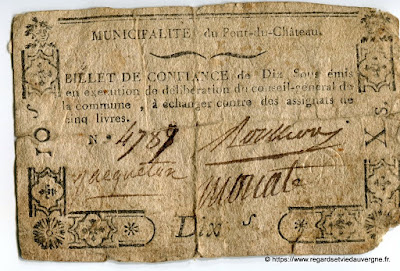 MUNICIPALITÉ du Pont-du-Château.
BILLET DE CONFIANCE de Dix Sous émis
en execution de délibération du conseil-général de
la commune, à échanger contre des assignats de
cinq livres.
N.° 4789
10 S
X S
Dix s
© https://www.regardsetviedauvergne.fr.